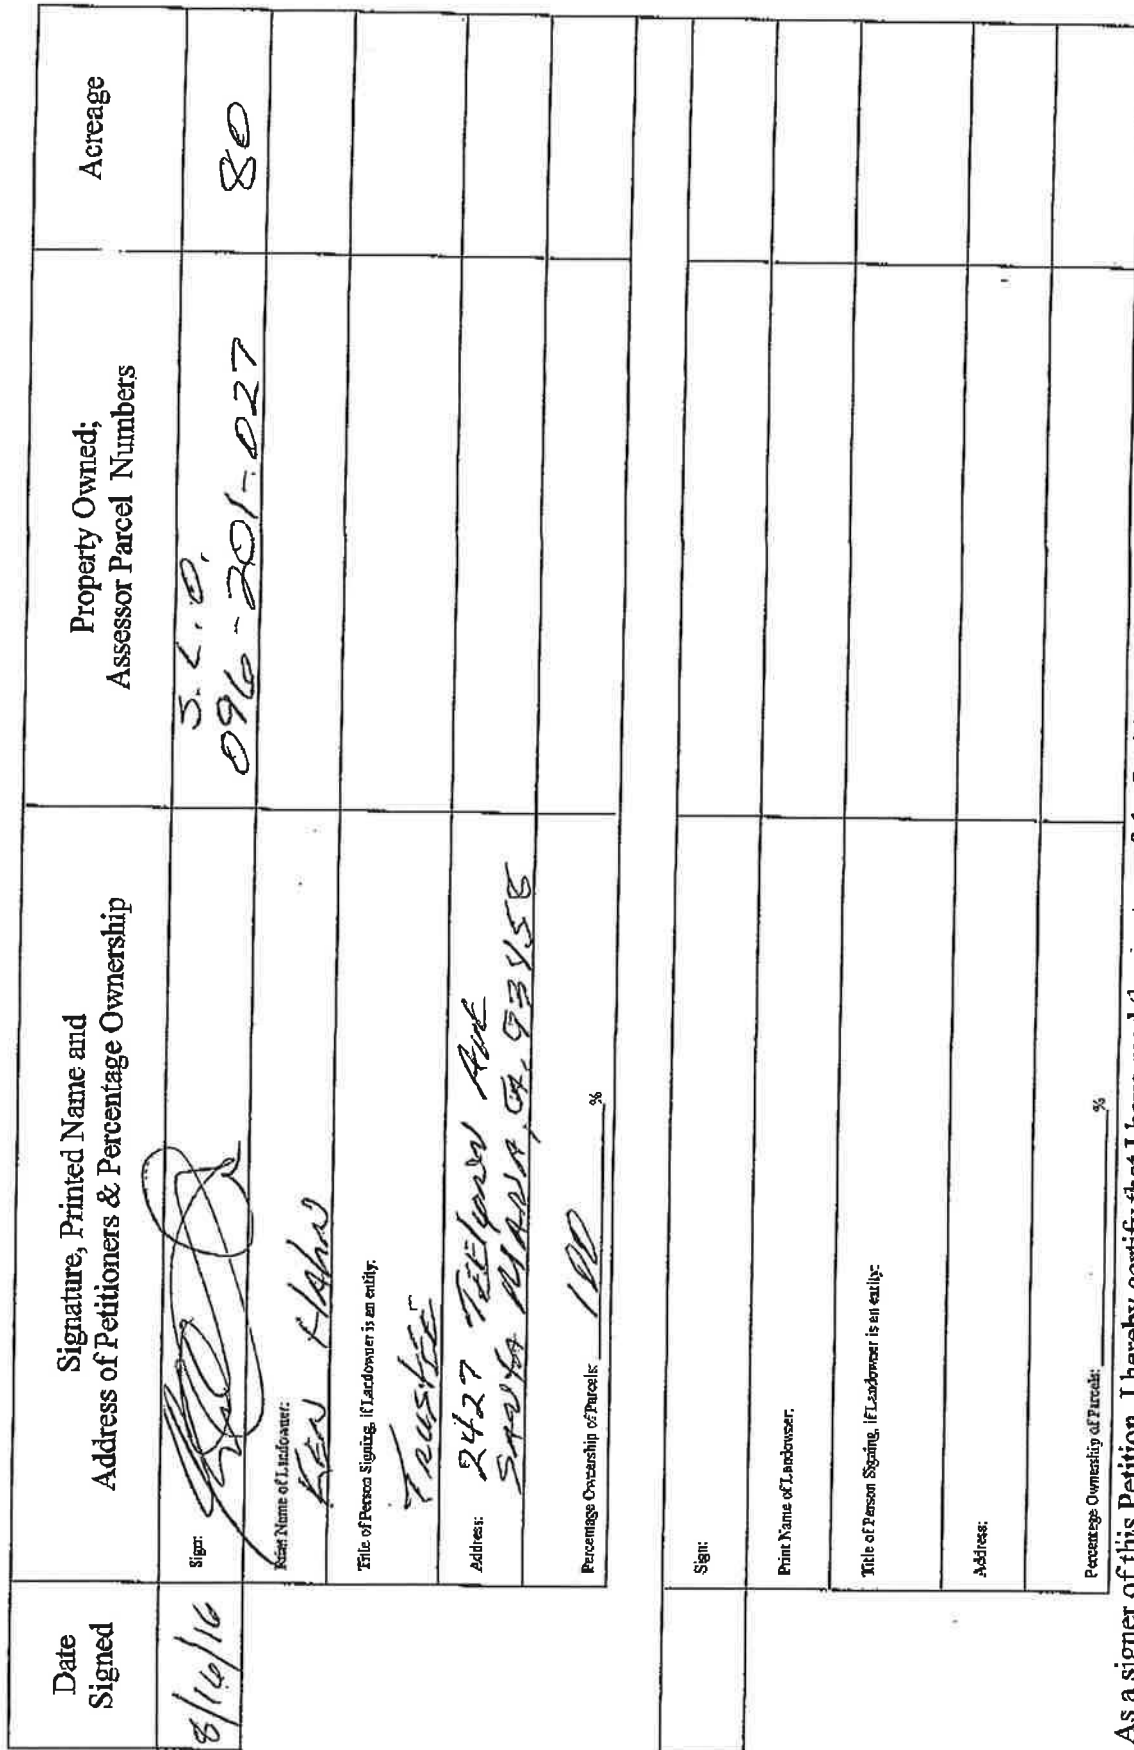 Date
Signed
Signature, Printed Name and
Address of Petitioners & Percentage Ownership
Property Owned;
Assessor Parcel Numbers
Acreage
8/16/16
Sign:
S.L.O.
096-201-027
80
Print Name of Landowner:
KEN HAHN
Title of Person Signing, if Landowner is an entity:
TRUSTEE
Address: 2427
AVE
SANTA MARIA, CA. 93455
Percentage Ownership of Parcels: 100 %
Sign:
Print Name of Landowner:
Title of Person Signing, if Landowner is an entity:
Address:
Percentage Ownership of Parcels: %
As a signer of this Petition, I hereby certify that I have read the